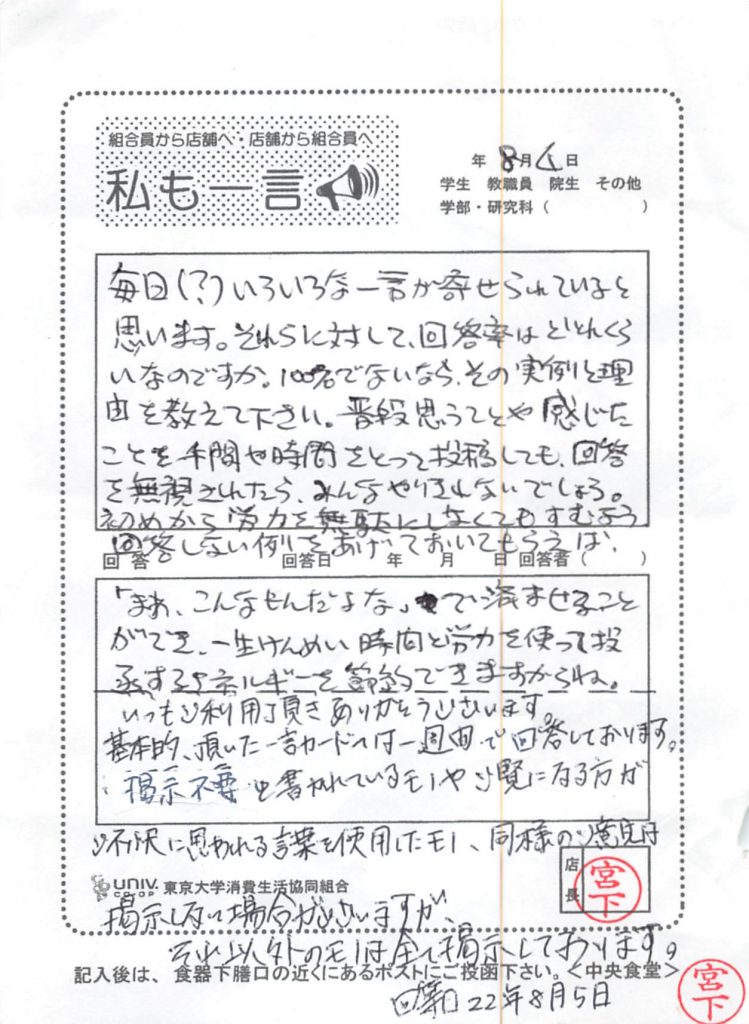 組合員から店舗へ・店舗から組合員へ
私も一言
年 8月 日
学生 教職員 院生 その他
学部・研究科( )
毎日(?)いろいろな一言が寄せられていると
思います。それらに対して、回答率はどれくら
いなのですか。100%でないなら、その実例と理
由を教えて下さい。普段思うことや感じた
ことを手間や時間をとって投稿しても、回答
を無視されたら、みんなやりきれないでしょう。
初めから労力を無駄にしなくてもすむよう
回答しない例をあげておいてもらえば、
回答 回答日 年 月 日 回答者( )
「まぁ、こんなもんだよな」で済ませること
ができ、一生けんめい時間と労力を使って投
函するエネルギーを節約できますからね。
いつもご利用頂きありがとうございます。
基本的、頂いた一言カードへは一週間で回答しております。
掲示不要と書かれているモノやご覧になる方が
ご不快に思われる言葉を使用したモノ、同様のご意見は
店長 宮下
UNIV. CO-OP 東京大学消費生活協同組合
掲示しない場合がございますが、
それ以外のモノは全て掲示しております。
記入後は、食器下膳口の近くにあるポストにご投函下さい。<中央食堂>
宮下
回答日 22年8月5日